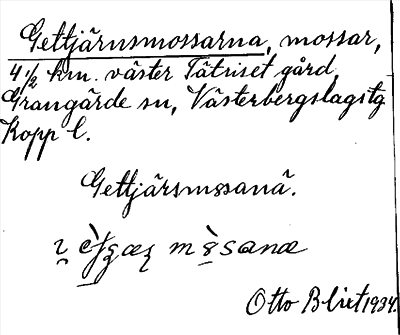 Gettjärnsmossarna, mossar,
4 1/2 km. väster Tätriset gård
Grangärde sn, Västerbergslagstg
Kopp l.
Gettjärsmssanä.
mòsanæ
Otto Blixt 1934.